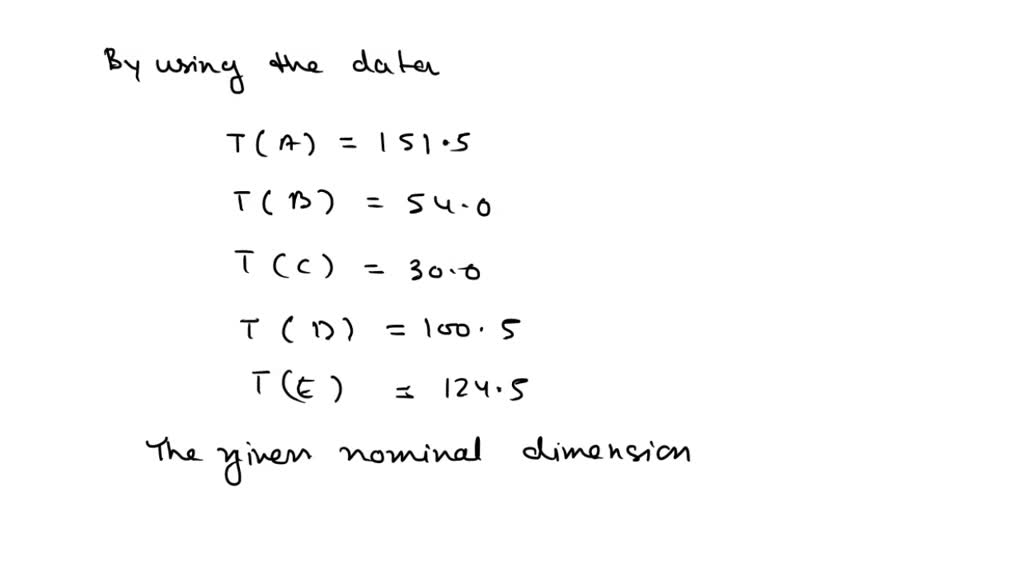 By using the data
T(A) = 151.5
T(B) = 54.0
T(C) = 30.0
T(D) = 100.5
T(E) = 124.5
The given nominal dimension